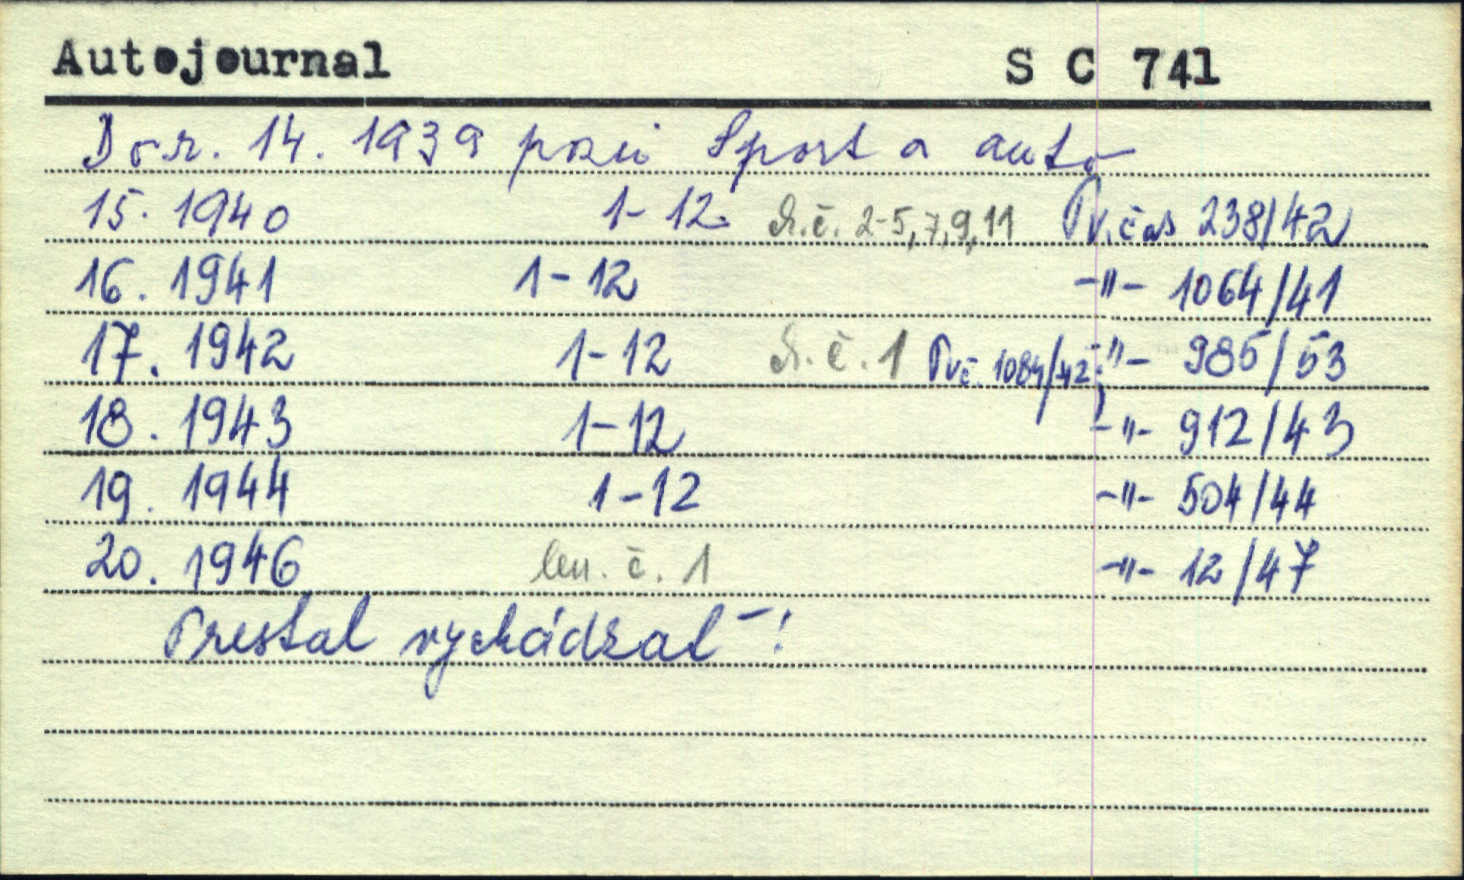 Autojournal S C 741
Do r. 14. 1939 pozri Sport a auto
15. 1940 1-12. č. 2-5,7,9,11 Pr.čas 238/42
16. 1941 1-12 -"- 1064/41
17. 1942 1-12 č. 1 Prč. 1084/42; -"- 985/53
18. 1943 1-12 -"- 912/43
19. 1944 1-12 -"- 504/44
20. 1946 len. č. 1 -"- 12/47
Prestal vychádzať!